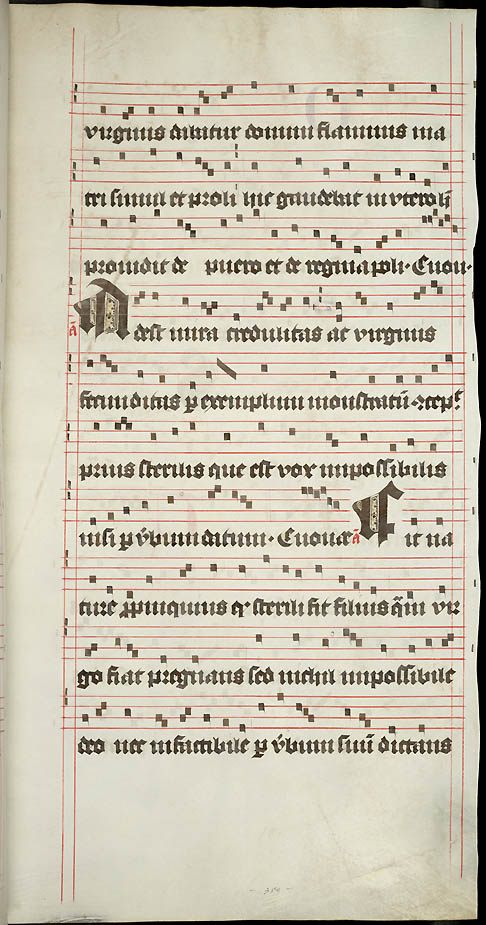 virginis dicitur domini flaminis ma
tri simul et proli hic gaudebit in vtero li
prouidit de puero et de regina poli. Euou.
a̅ Adest mira credulitas ac virginis
fecunditas p exemplum monstratu̅
prius sterilis que est vox impossibilis
nisi p v̅bum datum. Euouae a̅ Ut na
ture p̱pinquius sterili fit filius q̅m vir
go fiat pregnans sed nichil impossibile
deo nec infactibile p v̅bum sinu̅ dictans
354